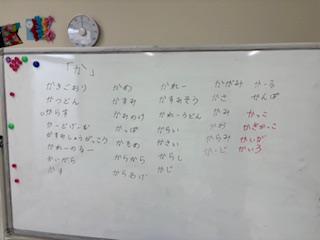 「か」
かきごおり
かつどん
からす
かーどげーむ
かすみしょうがっこう
かれーのるー
かいがら
かす
かめ
かすみ
かみのけ
かっぱ
かもめ
からから
からあげ
かれー
かすみそう
かれーうどん
からい
かさい
からし
かじ
かがみ
かさ
かみ
かお
からみ
かーど
かーる
かっこ
かぎかっこ
かいが
かいろ